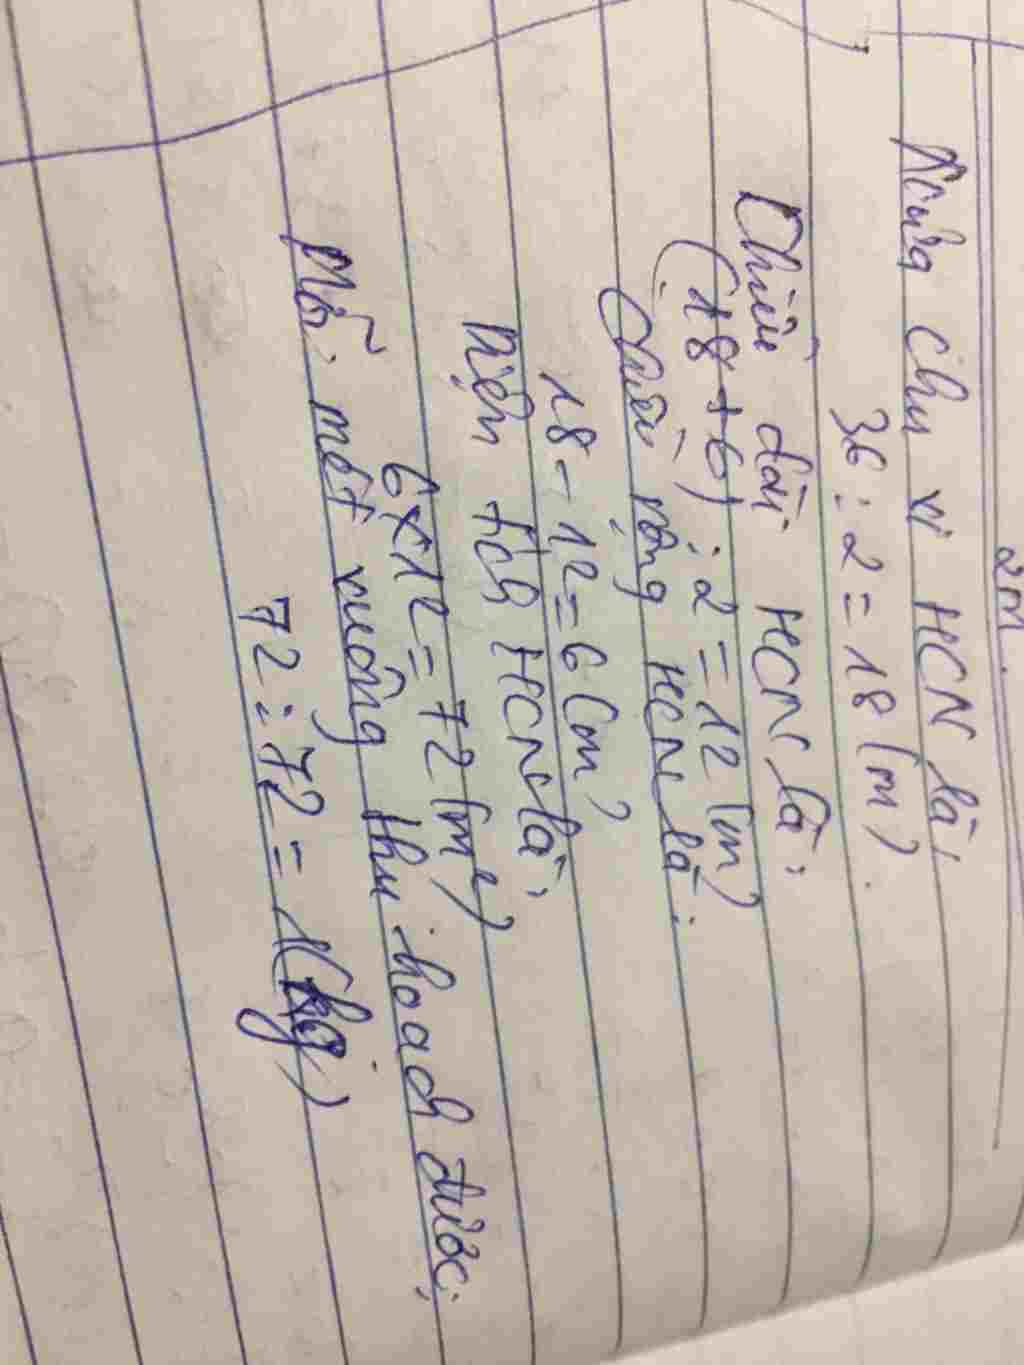 2m.
Nửa chu vi HCN là:
36 : 2 = 18 (m).
Chiều dài HCN là:
(18 + 6) : 2 = 12 (m)
Chiều rộng HCN là:
18 - 12 = 6 (m)
Diện tích HCN là:
6 x 12 = 72 (m²)
Mỗi mét vuông thu hoạch được:
72 : 72 = 1 (kg)